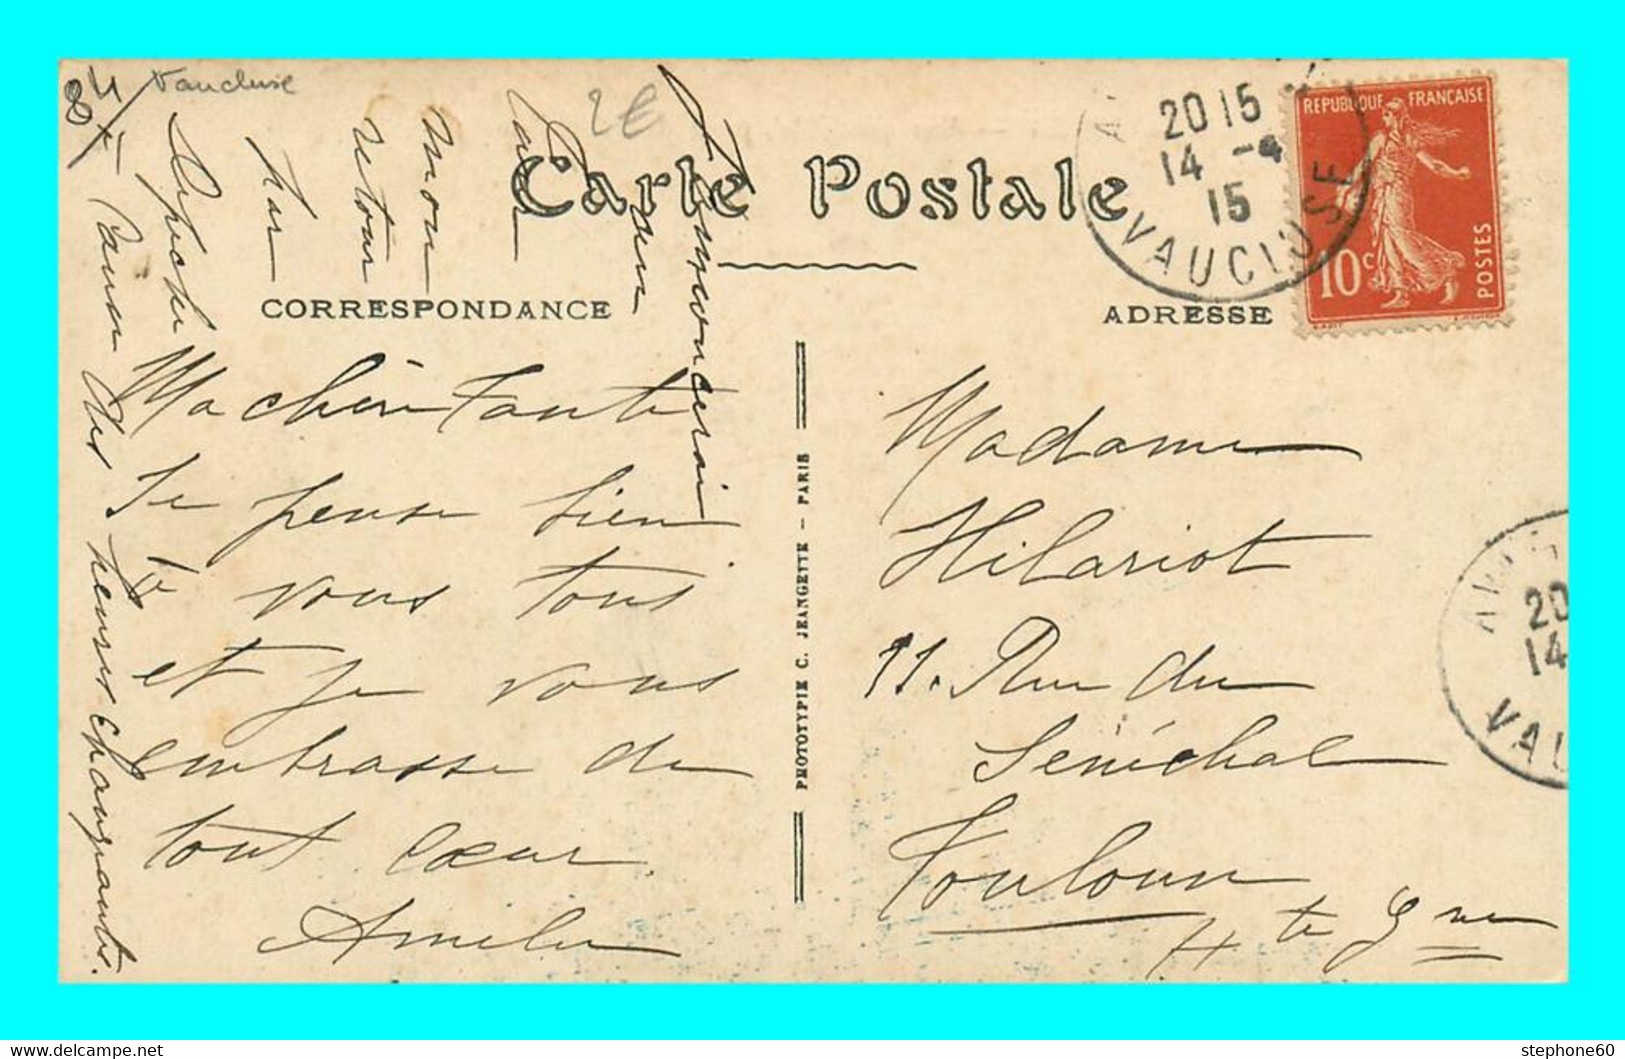 84
Vaucluse
2€
Carte Postale
CORRESPONDANCE
ADRESSE
20 15
14 -4
15
VAUCLUSE
REPUBLIQUE FRANÇAISE
10c
POSTES
Ma chère Tante
Je pense bien
à vous tous
et je vous
embrasse de
tout cœur
Amélie
annoncerai
mon
retour
par
dépêche
à cause des heures changeantes.
PHOTOTYPIE C. JEANGETTE - PARIS
Madame
Hilariot
11. Rue du
Sénéchal
Toulouse
Hte Gne
20
14
VAU
stephone60